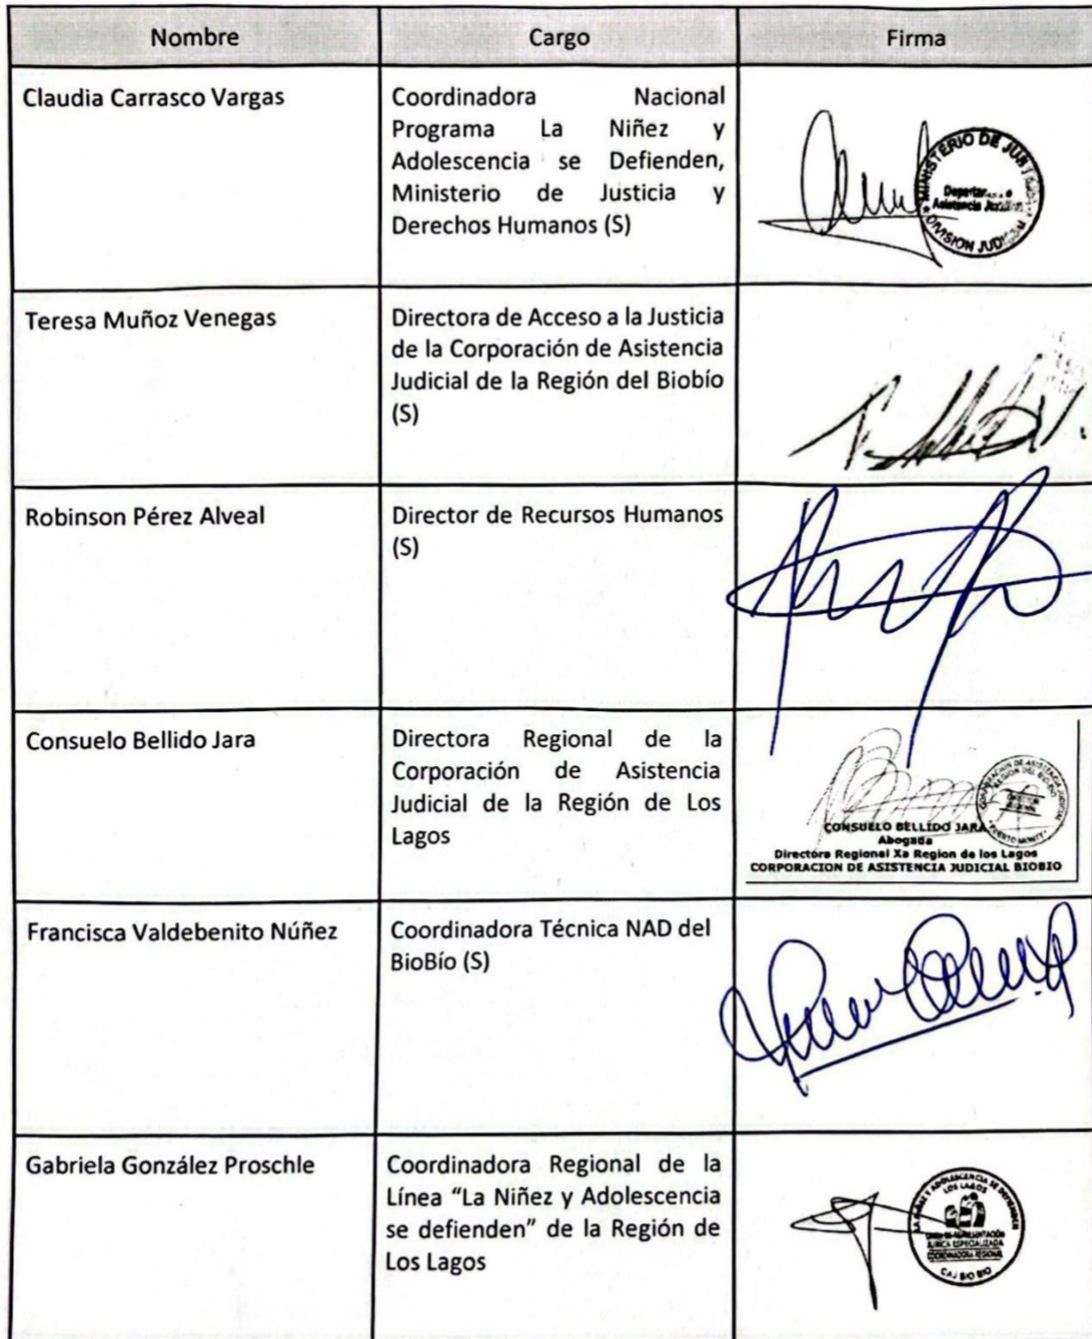 Nombre Cargo Firma
Claudia Carrasco Vargas
Coordinadora Nacional
Programa La Niñez y
Adolescencia se Defienden,
Ministerio de Justicia y
Derechos Humanos (S)
MINISTERIO DE
Asistencia
DIVISION
Teresa Muñoz Venegas
Directora de Acceso a la Justicia
de la Corporación de Asistencia
Judicial de la Región del Biobío
(S)
Robinson Pérez Alveal
Director de Recursos Humanos
(S)
Consuelo Bellido Jara
Directora Regional de la
Corporación de Asistencia
Judicial de la Región de Los
Lagos
CORPORACION DE ASISTENCIA JUDICIAL
REGION DEL BIOBIO
PUERTO MONTT
CONSUELO BELLIDO JARA
Abogada
Directora Regional Xa Region de los Lagos
CORPORACION DE ASISTENCIA JUDICIAL BIOBIO
Francisca Valdebenito Núñez
Coordinadora Técnica NAD del
BioBío (S)
Gabriela González Proschle
Coordinadora Regional de la
Línea “La Niñez y Adolescencia
se defienden” de la Región de
Los Lagos
LA NIÑEZ Y ADOLESCENCIA SE DEFIENDEN
LOS LAGOS
JURICA ESPECIALIZADA
COORDINADORA REGIONAL
CAJ BIO BIO